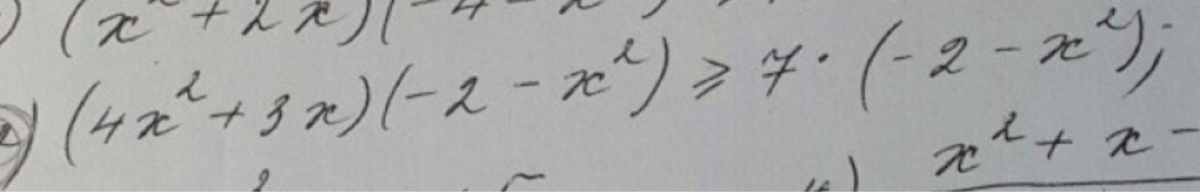 ) (x² + 2x)(-4 - x
) (4x² + 3x)(-2 - x²) ⩾ 7 · (-2 - x²);
x² + x -